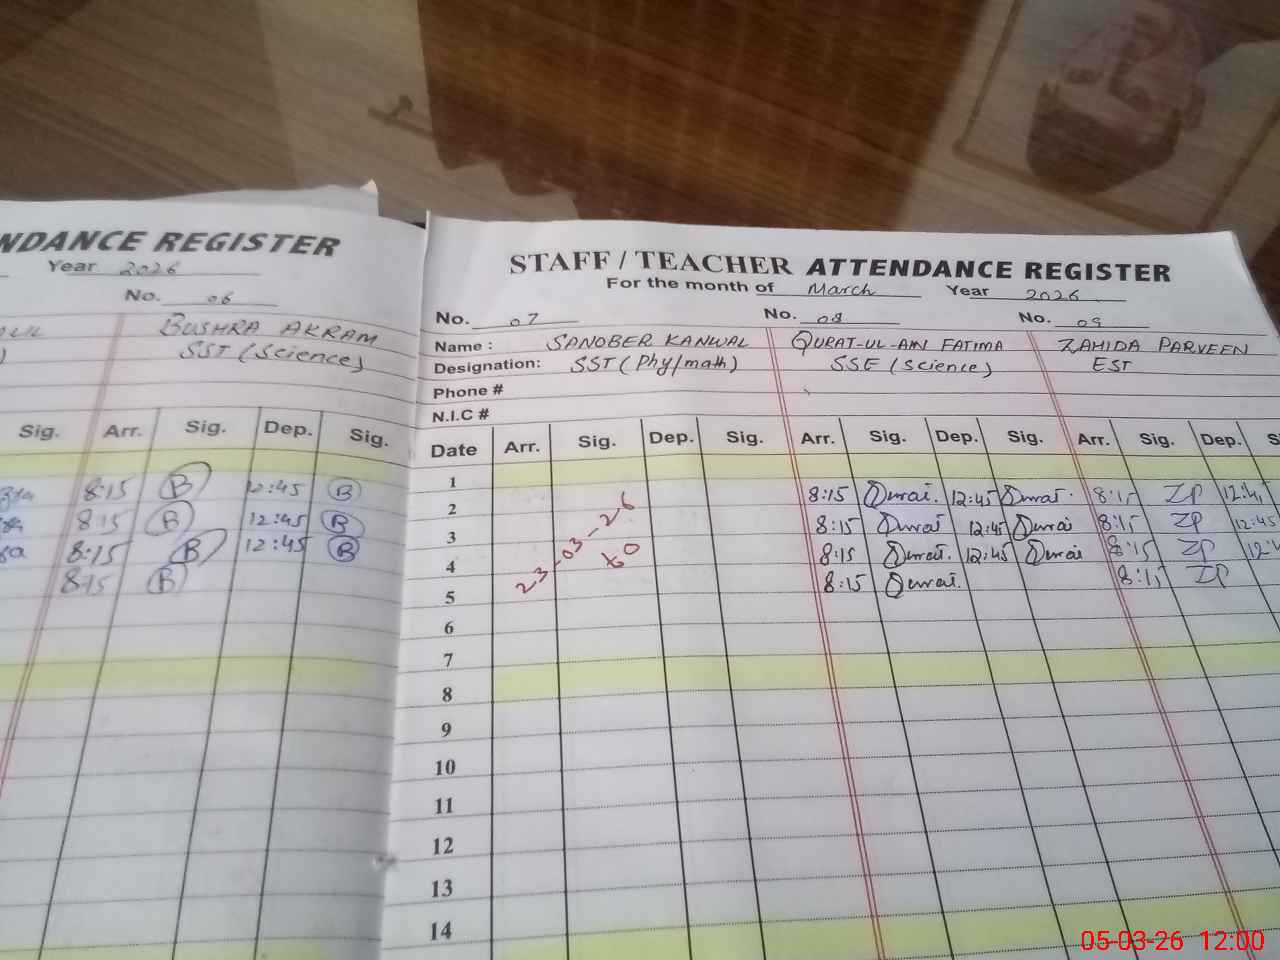 NDANCE REGISTER
Year 2026
No. 06
BUSHRA AKRAM
SST (Science)
Sig. Arr. Sig. Dep. Sig.
8:15 B 12:45 B
8:15 B 12:45 B
8:15 B 12:45 B
8:15 B
STAFF / TEACHER ATTENDANCE REGISTER
For the month of March Year 2026
No. 07 No. 08 No. 09
Name : SANOBER KANWAL QURAT-UL-AIN FATIMA ZAHIDA PARVEEN
Designation: SST (Phy/math) SSE (Science) EST
Phone #
N.I.C #
Date Arr. Sig. Dep. Sig. Arr. Sig. Dep. Sig. Arr. Sig. Dep. S
1
2 8:15 12:45 8:15 ZP 12:45
3 8:15 12:45 8:15 ZP 12:45
4 8:15 12:45 8:15 ZP
5 8:15 8:15 ZP
23-03-26
to
6
7
8
9
10
11
12
13
14
05-03-26 12:00